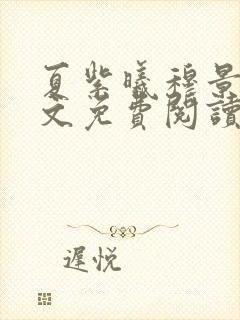 夏紫曦穆景
文免費閱讀
遲悅